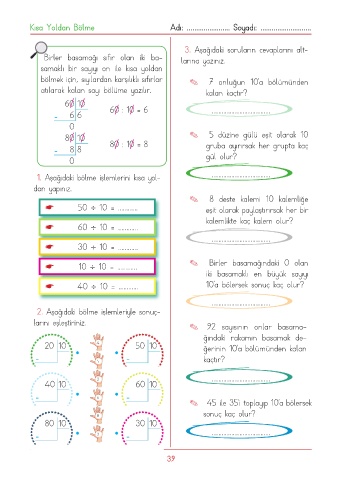 Kısa Yoldan Bölme
Adı: ..................... Soyadı: ........................
Birler basamağı sıfır olan iki ba-
samaklı bir sayıyı on ile kısa yoldan
bölmek için, sayılardan karşılıklı sıfırlar
atılarak kalan sayı bölüme yazılır.
60 10
- 6 6
0
60 : 10 = 6
80 10
- 8 8
0
80 : 10 = 8
1. Aşağıdaki bölme işlemlerini kısa yol-
dan yapınız.
50 ÷ 10 = ...........
60 ÷ 10 = ...........
30 ÷ 10 = ...........
10 ÷ 10 = ...........
40 ÷ 10 = ...........
2. Aşağıdaki bölme işlemleriyle sonuç-
larını eşleştiriniz.
20 10
-
50 10
-
40 10
-
60 10
-
80 10
-
30 10
-
3. Aşağıdaki soruların cevaplarını alt-
larına yazınız.
7 onluğun 10'a bölümünden
kalan kaçtır?
..........................
5 düzine gülü eşit olarak 10
gruba ayırırsak her grupta kaç
gül olur?
..........................
8 deste kalemi 10 kalemliğe
eşit olarak paylaştırırsak her bir
kalemlikte kaç kalem olur?
..........................
Birler basamağındaki 0 olan
iki basamaklı en büyük sayıyı
10'a bölersek sonuç kaç olur?
..........................
92 sayısının onlar basama-
ğındaki rakamın basamak de-
ğerinin 10'a bölümünden kalan
kaçtır?
..........................
45 ile 35'i toplayıp 10'a bölersek
sonuç kaç olur?
..........................
39